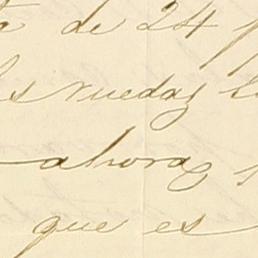 de 24
ruedas
ahora
que es